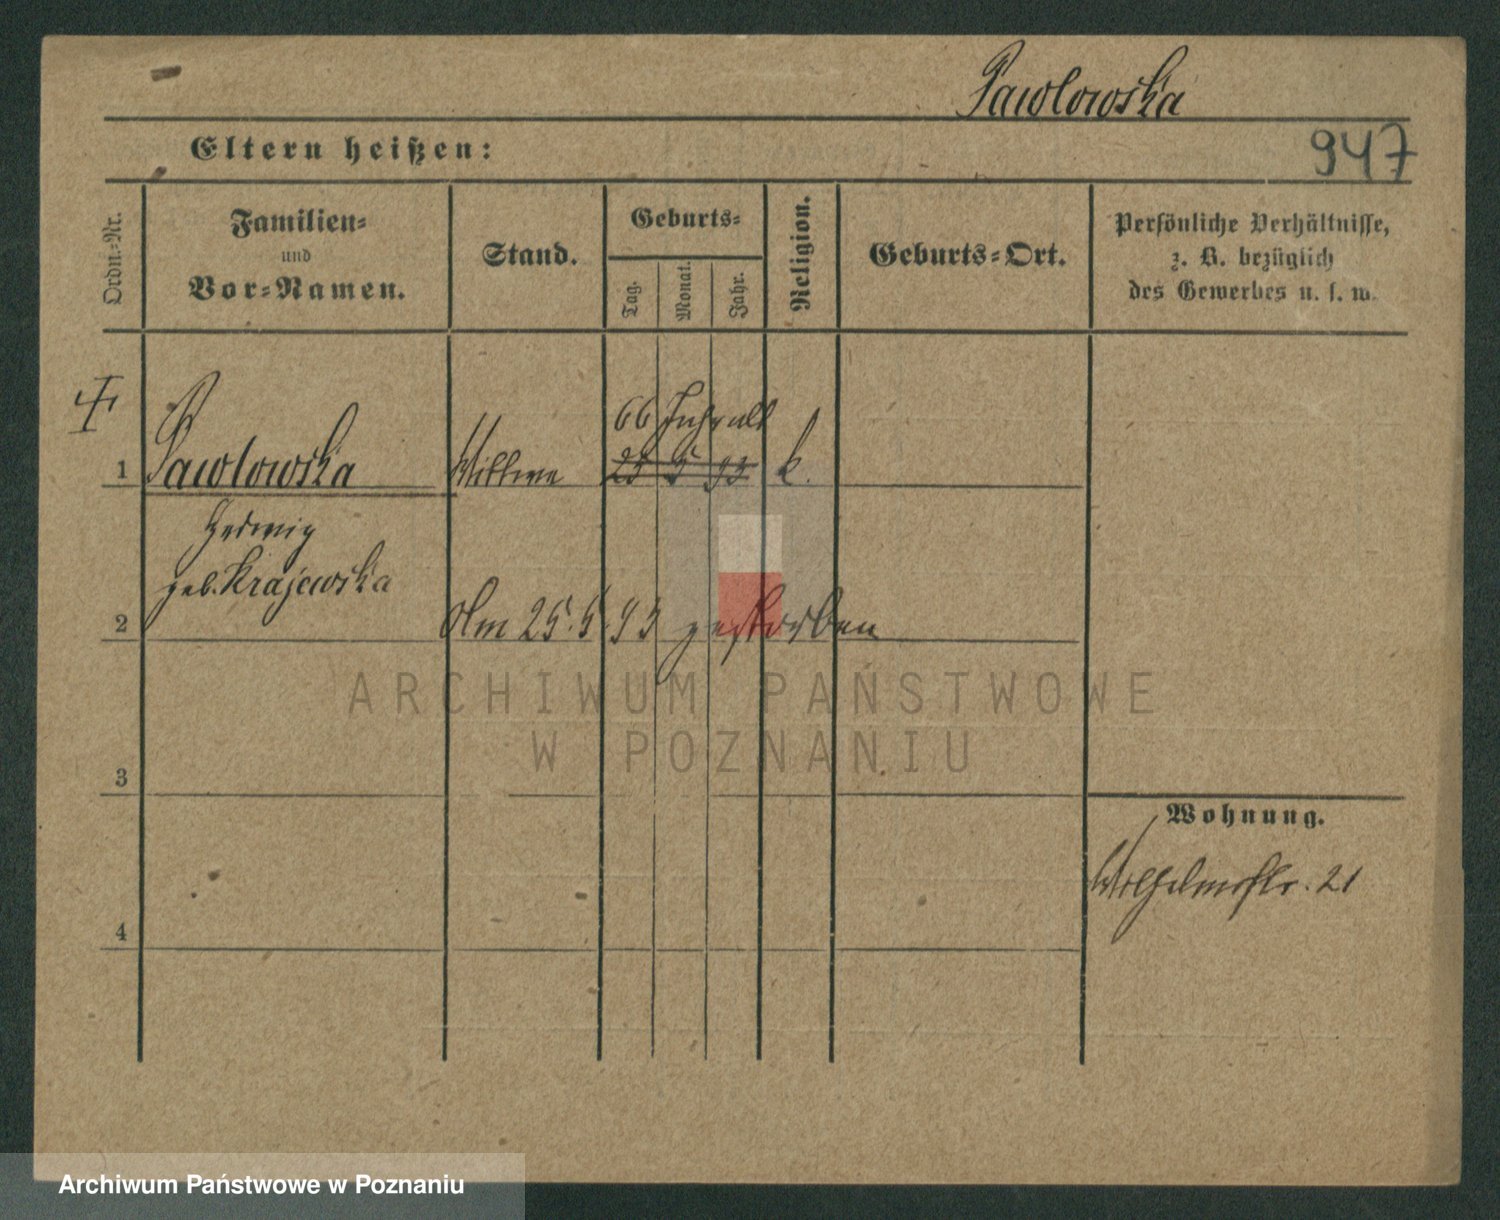 Pawlowska
947
Eltern heißen:
Ordn.=Nr.
Familien=
und
Vor=Namen.
Stand.
Geburts=
Tag.
Monat.
Jahr.
Religion.
Geburts=Ort.
Persönliche Verhältnisse,
z. B. bezüglich
des Gewerbes u. s. w.
66 Jahr alt
1 Pawlowska Wittwe 25 5 93 k.
Hedwig
geb. Krajewska
2 Am 25.5.93 gestorben
ARCHIWUM PAŃSTWOWE
W POZNANIU
3
Wohnung.
Wilhelmstr. 21
4
Archiwum Państwowe w Poznaniu